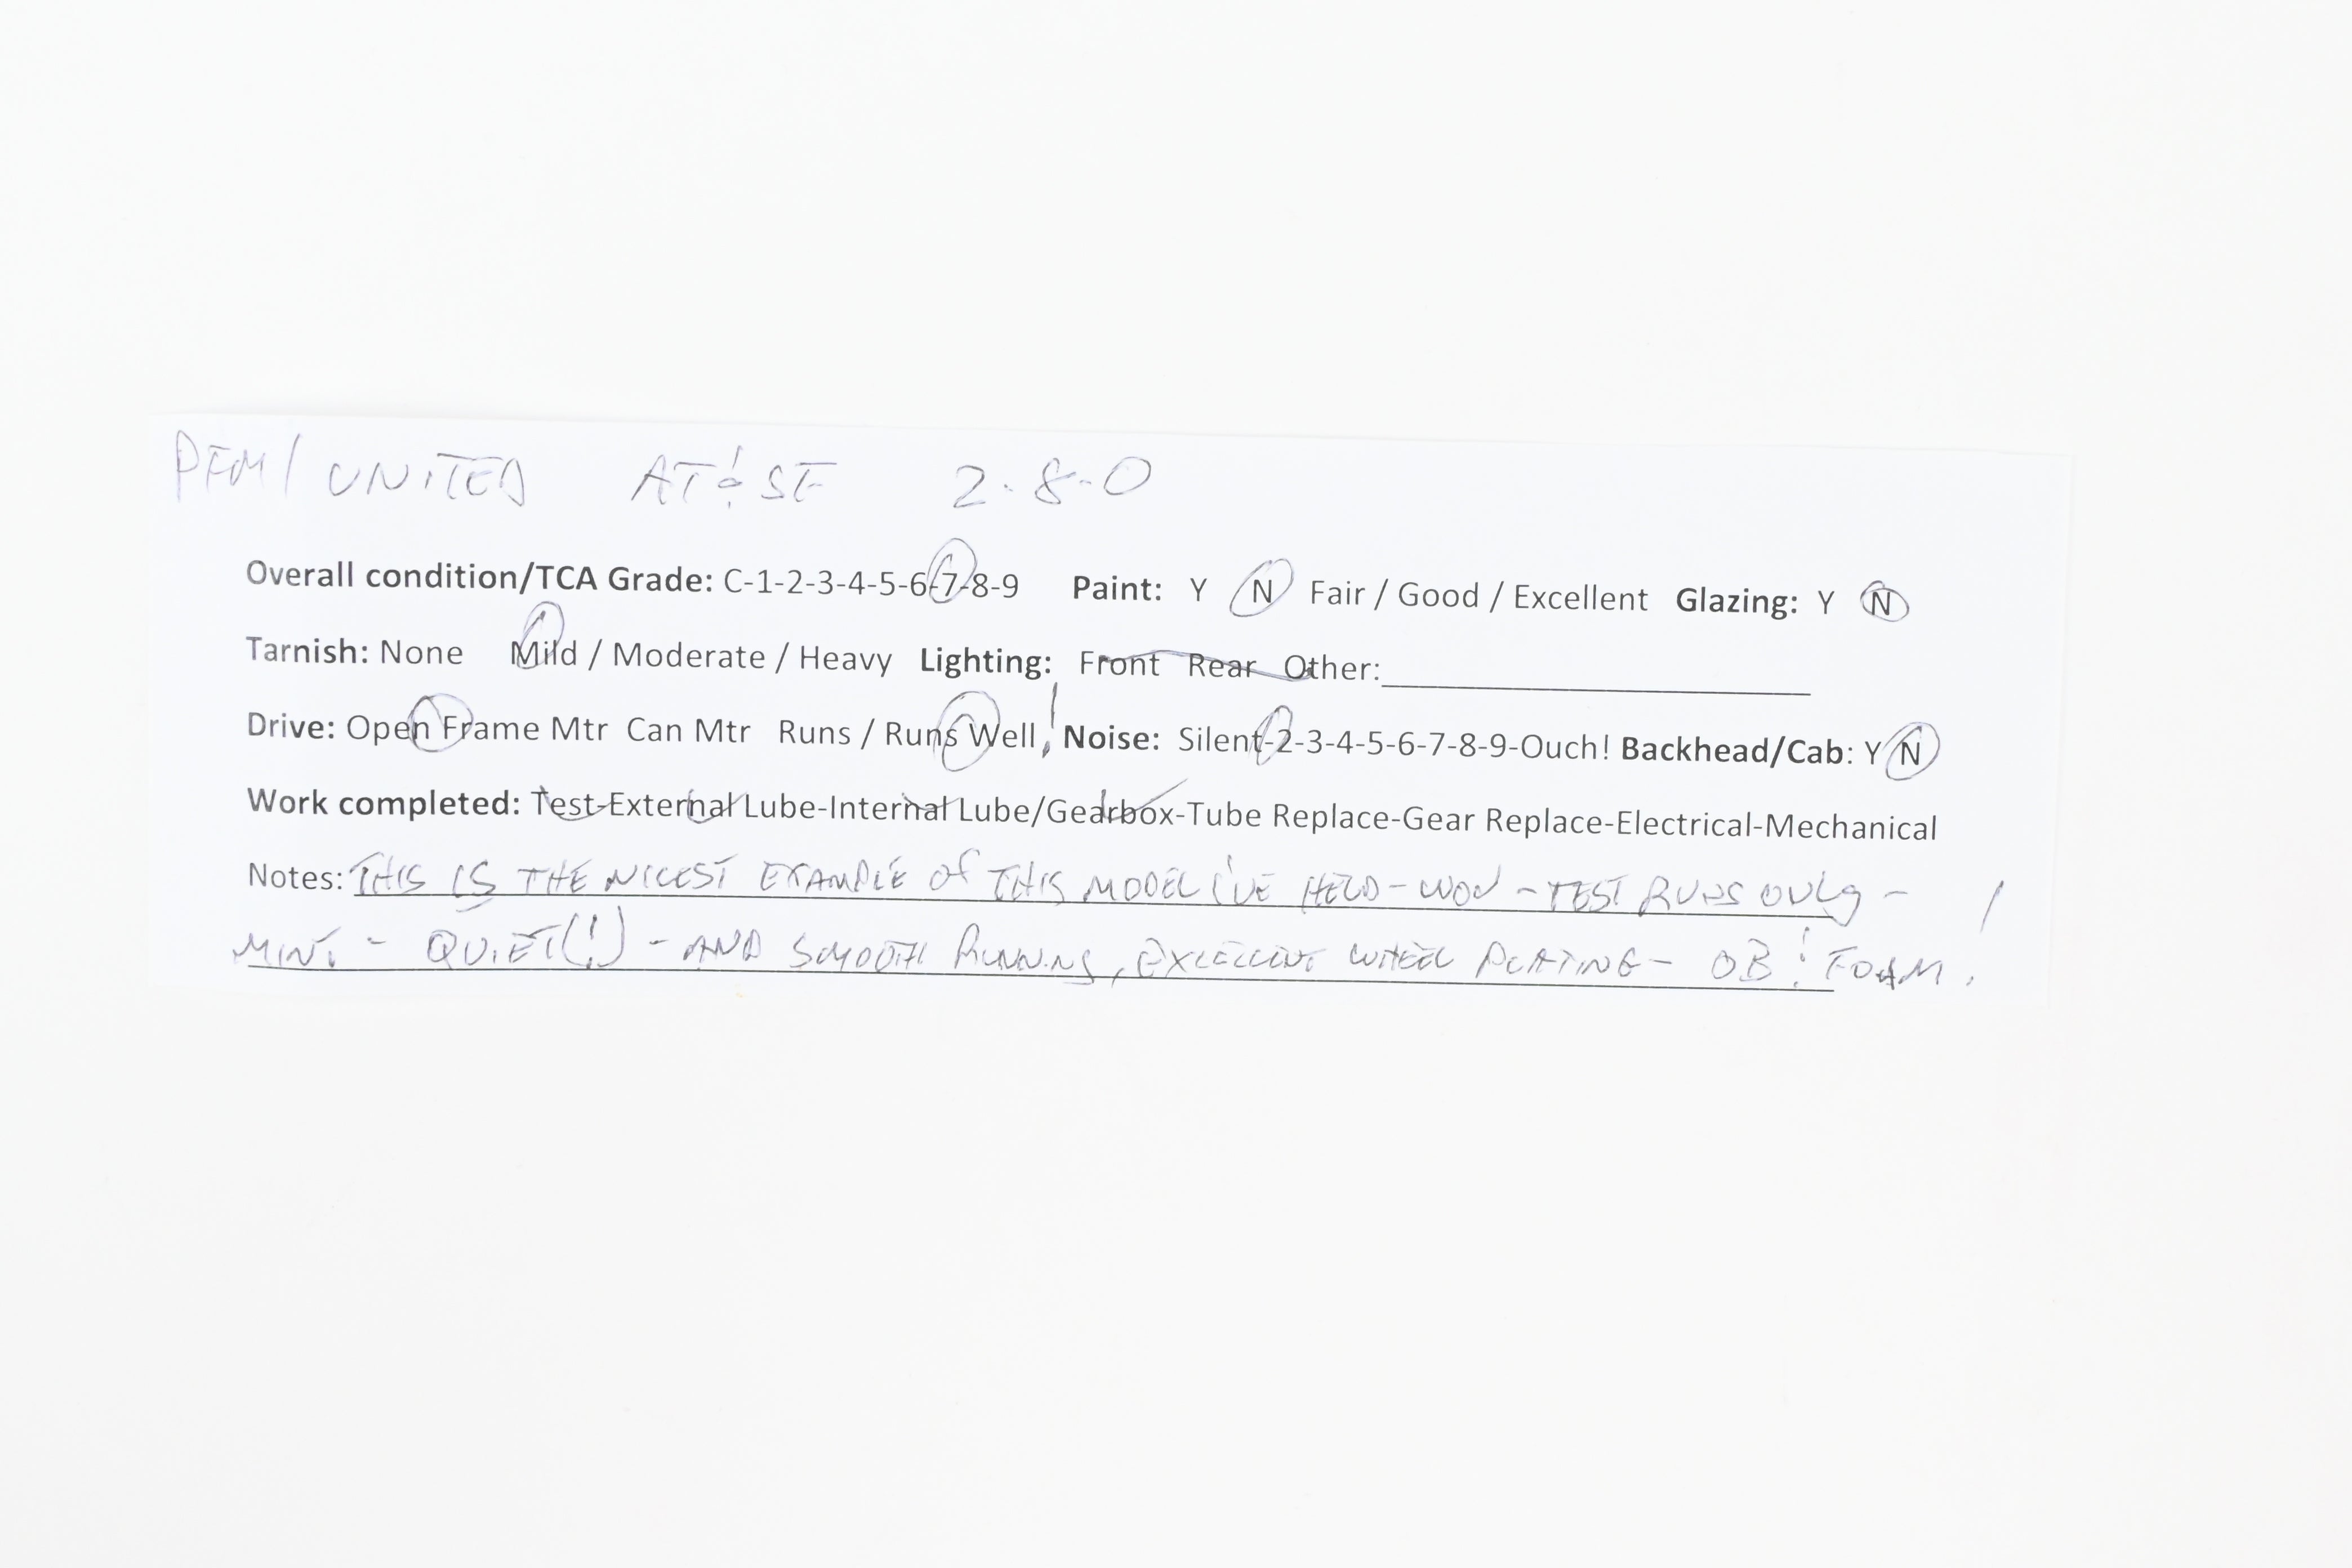 PFM/UNITED AT&SF 2-8-0
Overall condition/TCA Grade: C-1-2-3-4-5-6-7-8-9 Paint: Y N Fair / Good / Excellent Glazing: Y N
Tarnish: None Mild / Moderate / Heavy Lighting: Front Rear Other:
Drive: Open Frame Mtr Can Mtr Runs / Runs Well! Noise: Silent-2-3-4-5-6-7-8-9-Ouch! Backhead/Cab: Y N
Work completed: Test-External Lube-Internal Lube/Gearbox-Tube Replace-Gear Replace-Electrical-Mechanical
Notes: THIS IS THE NICEST EXAMPLE OF THIS MODEL I'VE HELD - WOW - TEST RUNS ONLY -
MINT - QUIET(!) - AND SMOOTH RUNNING, EXCELLENT WHEEL PLATING - OB & FOAM!